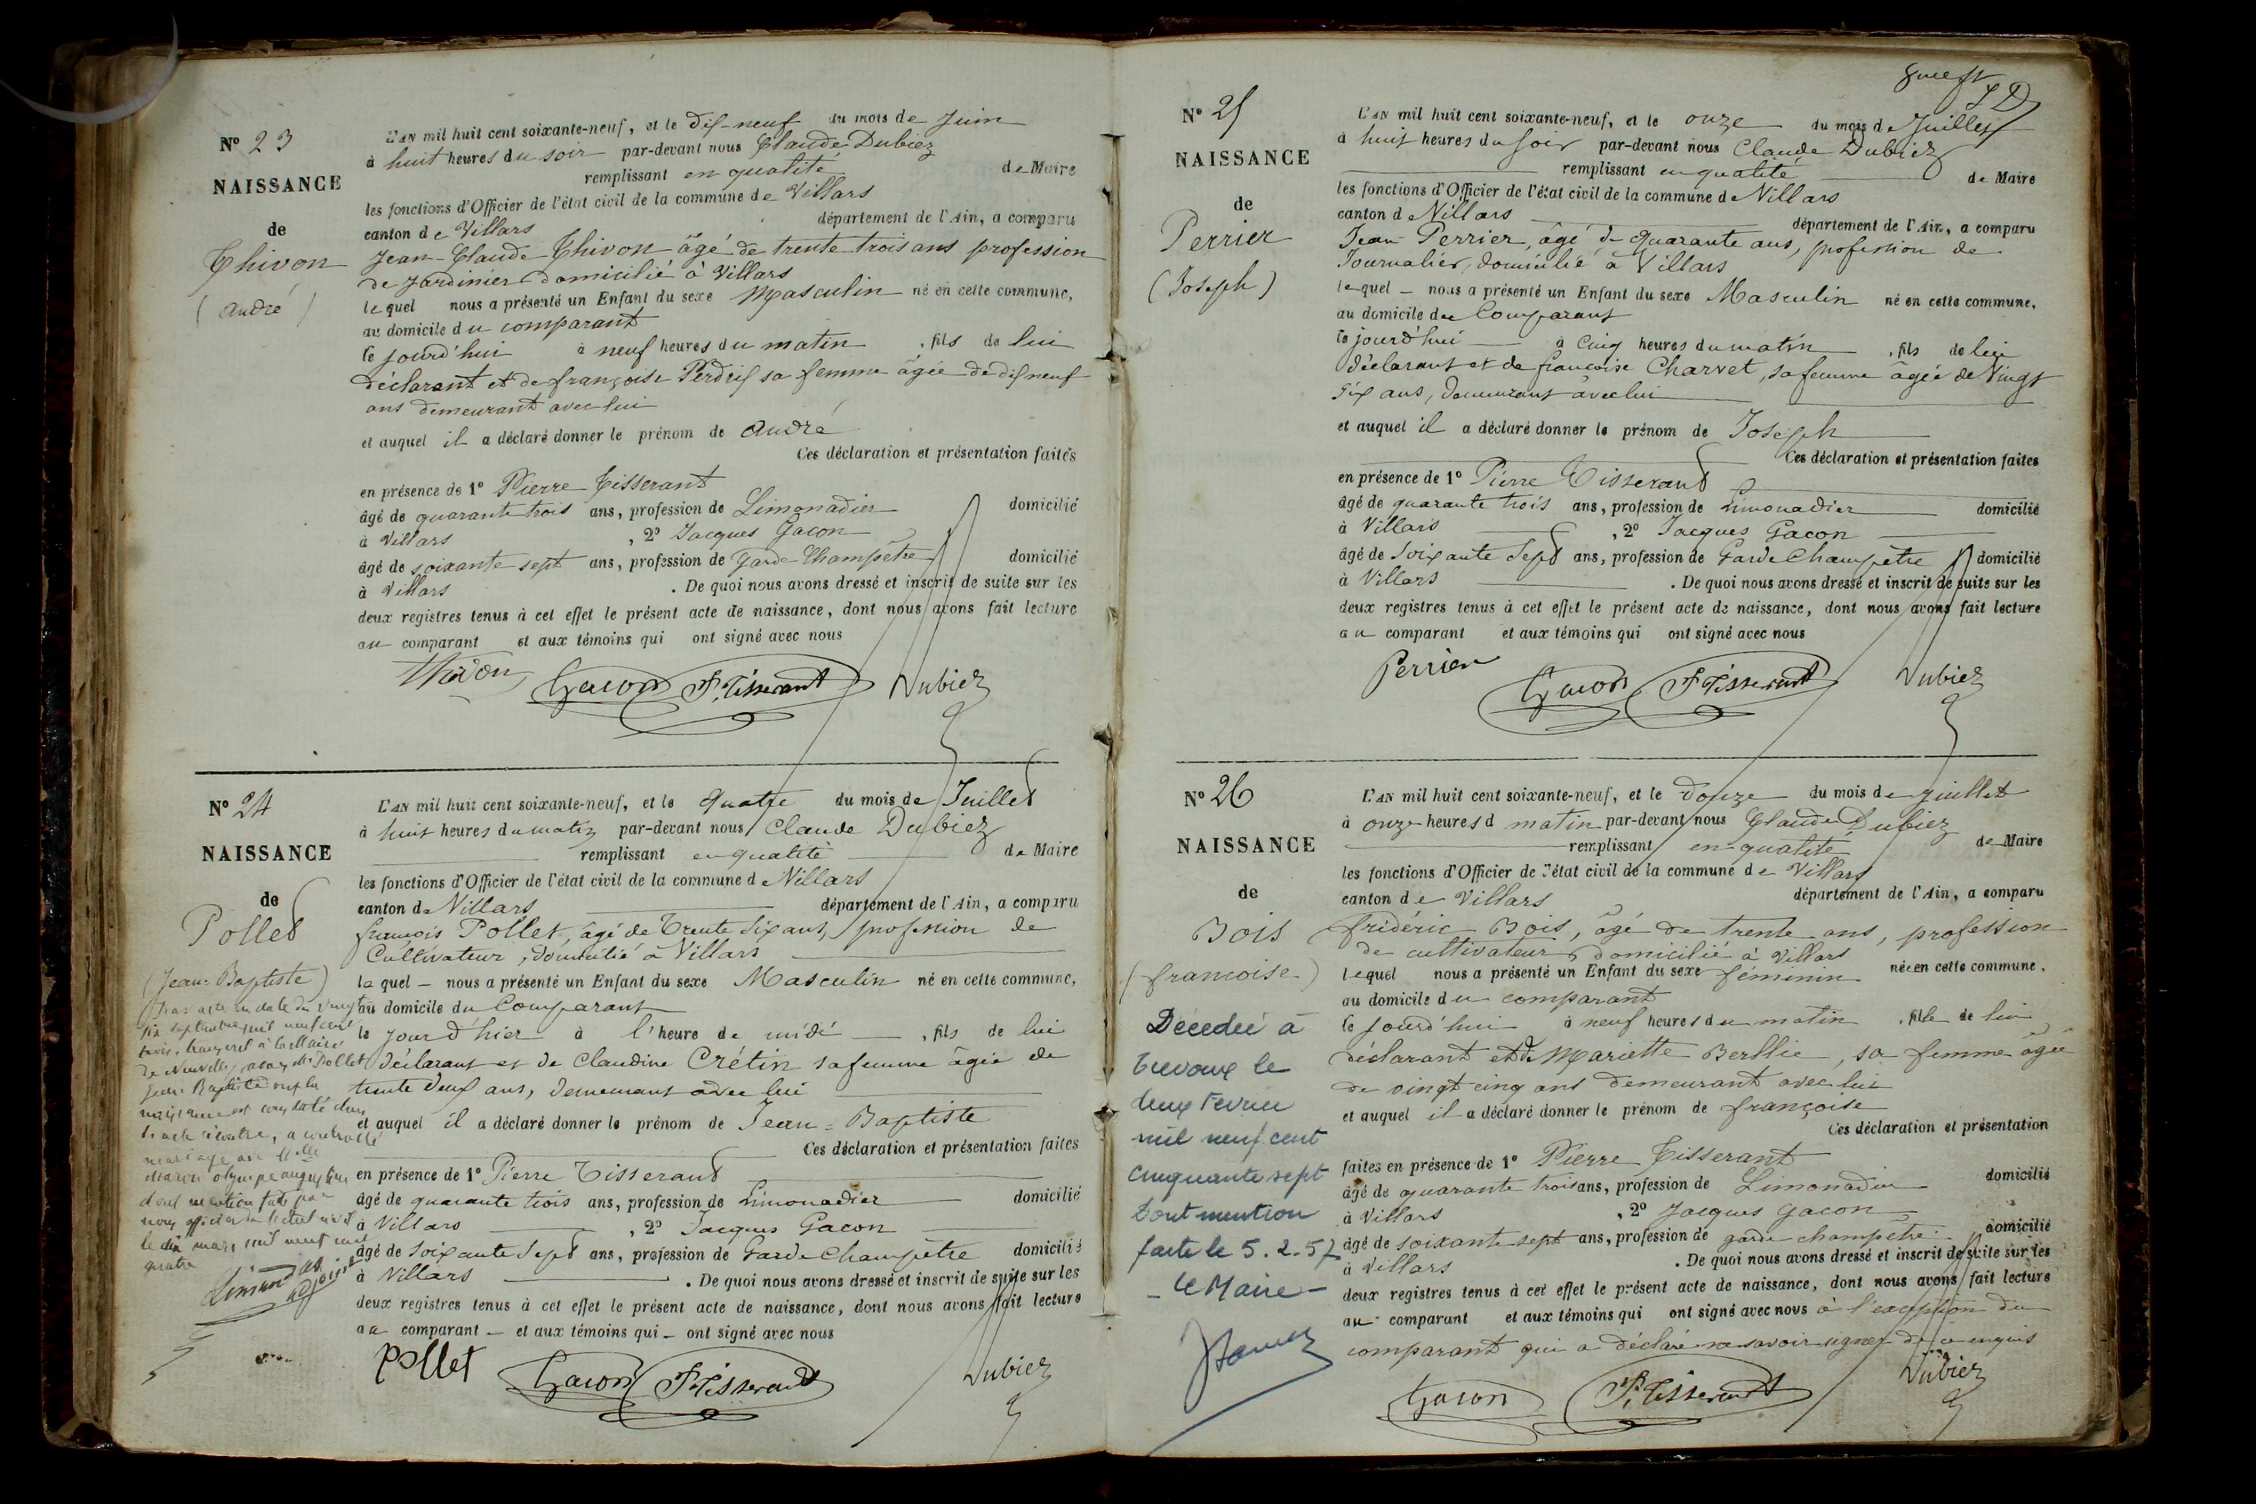 Nº 23
NAISSANCE
de
Thivon
(André)
L'AN mil huit cent soixante-neuf, et le dix-neuf du mois de Juin
à huit heures du soir par-devant nous Claude Dubiez
remplissant en qualité de Maire
les fonctions d'Officier de l'état civil de la commune de Villars
canton de Villars département de l'Ain, a comparu
Jean-Claude Thivon âgé de trente trois ans profession
de Jardinier domicilié à Villars
lequel nous a présenté un Enfant du sexe Masculin né en cette commune,
au domicile du comparant
le jourd'hui à neuf heures du matin, fils de lui
déclarant et de françoise Perdrix sa femme âgée de dix neuf
ans demeurant avec lui
et auquel il a déclaré donner le prénom de André
Ces déclaration et présentation faites
en présence de 1º Pierre Tisserant
âgé de quarante trois ans, profession de Limonadier domicilié
à Villars, 2º Jacques Gacon
âgé de soixante sept ans, profession de Garde Champêtre domicilié
à Villars. De quoi nous avons dressé et inscrit de suite sur les
deux registres tenus à cet effet le présent acte de naissance, dont nous avons fait lecture
au comparant et aux témoins qui ont signé avec nous
Thivon Gacon P. Tisserant Dubiez
Nº 24
NAISSANCE
de
Pollet
(Jean-Baptiste)
L'AN mil huit cent soixante-neuf, et le Quatre du mois de Juillet
à huit heures du matin par-devant nous Claude Dubiez
remplissant en qualité de Maire
les fonctions d'Officier de l'état civil de la commune de Villars
canton de Villars département de l'Ain, a comparu
françois Pollet, âgé de Trente Six ans, profession de
Cultivateur, domicilié à Villars
lequel - nous a présenté un Enfant du sexe Masculin né en cette commune,
au domicile du Comparant
le jour d'hier à l'heure de midi, fils de lui
déclarant et de Claudine Crétin sa femme âgée de
trente deux ans, demeurant avec lui
et auquel il a déclaré donner le prénom de Jean=Baptiste
Ces déclaration et présentation faites
en présence de 1º Pierre Tisserand
âgé de quarante trois ans, profession de Limonadier domicilié
à Villars, 2º Jacques Gacon
âgé de Soixante Sept ans, profession de Garde Champêtre domicilié
à Villars. De quoi nous avons dressé et inscrit de suite sur les
deux registres tenus à cet effet le présent acte de naissance, dont nous avons fait lecture
au comparant - et aux témoins qui - ont signé avec nous
Pollet Gacon P. Tisserant Dubiez
Par acte en date du vingt
six septembre mil neuf cent
trois, transcrit à la Mairie
de Neuville Mr Pollet
Jean Baptiste dont la
naissance est constatée dans
l'acte ci contre, a contracté
mariage avec Melle
olympe augustine
dont mention faite par
nous officier de l'état civil
le dix mars mil neuf cent
quatre
adjoint
Nº 25
NAISSANCE
de
Perrier
(Joseph)
L'AN mil huit cent soixante-neuf, et le onze du mois de Juillet
à huit heures du soir par-devant nous Claude Dubiez
remplissant en qualité de Maire
les fonctions d'Officier de l'état civil de la commune de Villars
canton de Villars département de l'Ain, a comparu
Jean Perrier, âgé de quarante ans, profession de
Journalier, domicilié à Villars
lequel - nous a présenté un Enfant du sexe Masculin né en cette commune,
au domicile du Comparant
le jourd'hui à Cinq heures du matin, fils de lui
déclarant et de françoise Charvet, sa femme âgée de Vingt
Six ans, demeurant avec lui
et auquel il a déclaré donner le prénom de Joseph
Ces déclaration et présentation faites
en présence de 1º Pierre Tisserant
âgé de quarante trois ans, profession de Limonadier domicilié
à Villars, 2º Jacques Gacon
âgé de Soixante Sept ans, profession de Garde Champêtre domicilié
à Villars. De quoi nous avons dressé et inscrit de suite sur les
deux registres tenus à cet effet le présent acte de naissance, dont nous avons fait lecture
au comparant et aux témoins qui ont signé avec nous
Perrier Gacon P. Tisserant Dubiez
Nº 26
NAISSANCE
de
Bois
(françoise)
L'AN mil huit cent soixante-neuf, et le Douze du mois de juillet
à onze heures d matin par-devant nous Claude Dubiez
remplissant en qualité de Maire
les fonctions d'Officier de l'état civil de la commune de Villars
canton de Villars département de l'Ain, a comparu
frédéric Bois, âgé de trente ans, profession
de cultivateur domicilié à Villars
lequel nous a présenté un Enfant du sexe féminin née en cette commune,
au domicile du comparant
le jourd'hui à neuf heures du matin, fille de lui
déclarant et de Mariette Berllie, sa femme âgée
de vingt cinq ans demeurant avec lui
et auquel il a déclaré donner le prénom de françoise
Ces déclaration et présentation
faites en présence de 1º Pierre Tisserant
âgé de quarante trois ans, profession de Limonadier domicilié
à Villars, 2º Jacques Gacon
âgé de soixante sept ans, profession de garde champêtre domicilié
à Villars. De quoi nous avons dressé et inscrit de suite sur les
deux registres tenus à cet effet le présent acte de naissance, dont nous avons fait lecture
au comparant et aux témoins qui ont signé avec nous à l'exception du
comparant qui a déclaré ne savoir signer de ce enquis
Gacon P. Tisserant Dubiez
Décédée à
Trevoux le
deux Fevrier
mil neuf cent
cinquante sept
Dont mention
faite le 5.2.57
- Le Maire -